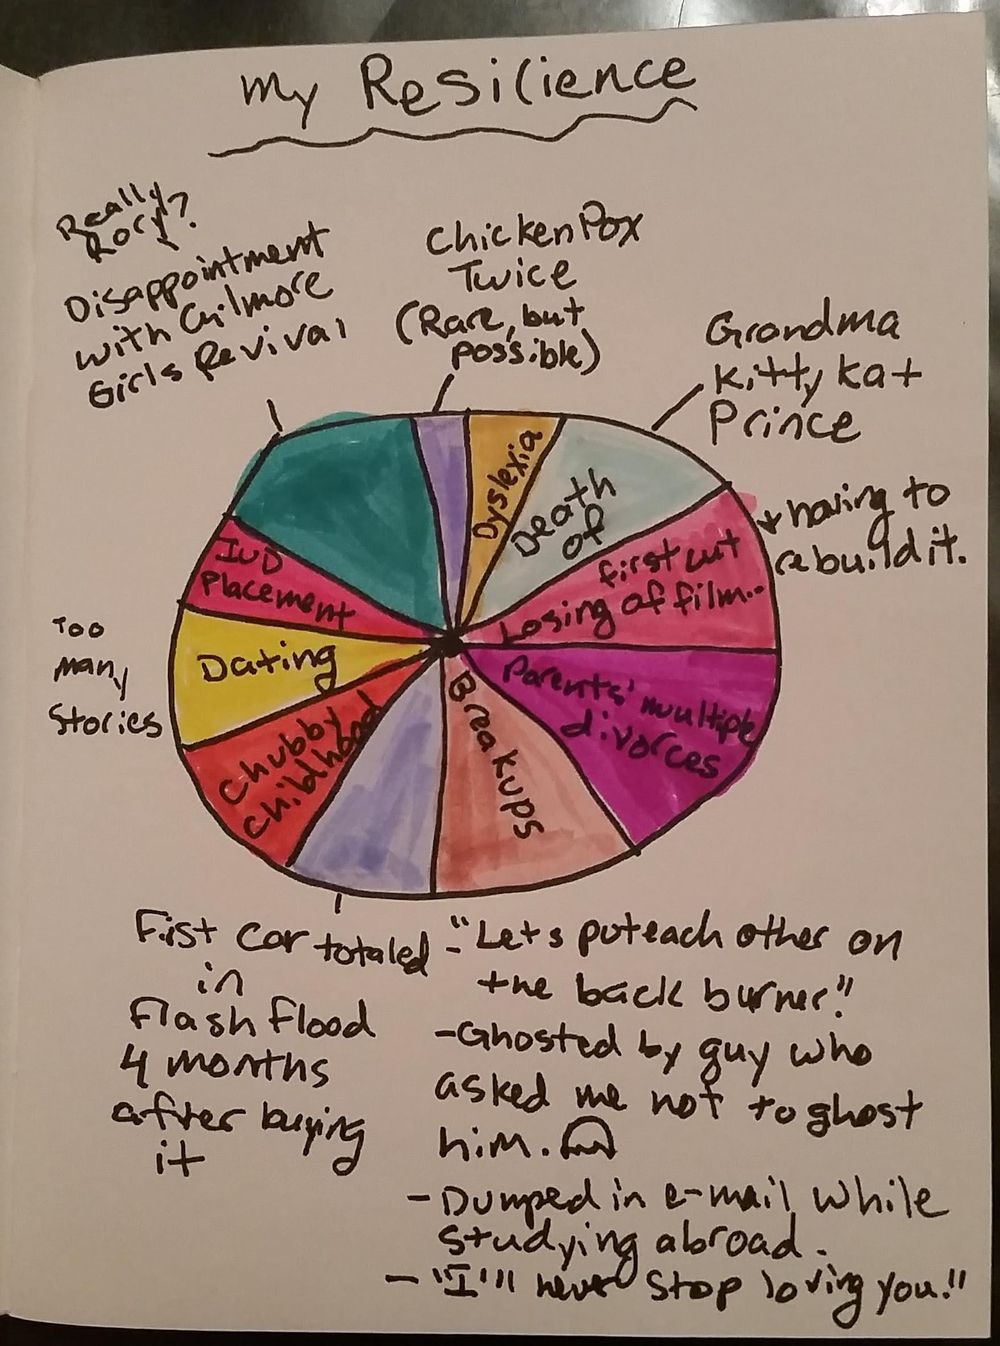 My Resilience
Really
Rory?
Disappointment
with Gilmore
Girls Revival
Chicken Pox
Twice
(Rare, but
possible)
Grandma
Kitty Kat
Prince
Dyslexia
Death
of
first cut
Losing of film...
* having to
rebuild it.
IUD
Placement
Too
Many
Stories
Dating
Parents' multiple
divorces
Chubby
childhood
Breakups
First car totaled
in
flash flood
4 months
after buying
it
- "Lets put each other on
the back burner."
- Ghosted by guy who
asked me not to ghost
him.
- Dumped in e-mail while
studying abroad.
- "I'll never stop loving you."